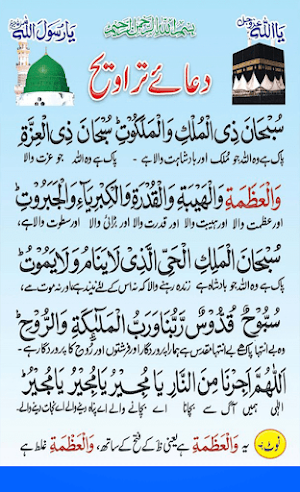 بسم اللہ الرحمن الرحیم
یااللہ عزوجل
یارسول اللہ
دعائے تراویح
سُبْحَانَ ذِی الْمُلْكِ وَالْمَلَكُوْتِ سُبْحَانَ ذِی الْعِزَّةِ
پاک ہے وہ اللہ جو مُلک اور بادشاہت والا ہے - پاک ہے وہ اللہ جو عزت والا
وَالْعَظَمَةِ وَالْهَيْبَةِ وَالْقُدْرَةِ وَالْكِبْرِيَآءِ وَالْجَبَرُوْتِ
اور عظمت والا اور ہیبت والا اور قدرت والا اور بڑائی والا اور سطوت والا ہے،
سُبْحَانَ الْمَلِكِ الْحَیِّ الَّذِیْ لَا یَنَامُ وَلَا یَمُوْتُ
پاک ہے وہ اللہ جو بادشاہ ہے زندہ رہنے والا کہ نہ اس کے لئے نیند ہے اور نہ موت ہے،
سُبُّوْحٌ قُدُّوْسٌ رَّبُّنَا وَرَبُّ الْمَلٰٓئِكَةِ وَالرُّوْحِ
وہ بے انتہا پاک ہے بے انتہا مقدس ہے ہمارا پروردگار اور فرشتوں اور رُوح کا پروردگار ہے -
اَللّٰهُمَّ اَجِرْنَا مِنَ النَّارِ یَا مُجِیْرُ یَا مُجِیْرُ یَا مُجِیْرُ
الٰہی ہمیں آگ سے بچانا اے بچانے والے اے پناہ دینے والے اے نجات دینے والے-
نوٹ:- یہ وَالْعَظَمَةِ ہے یعنی ظ کے فتح کے ساتھ، وَالْعَظْمَةِ غلط ہے